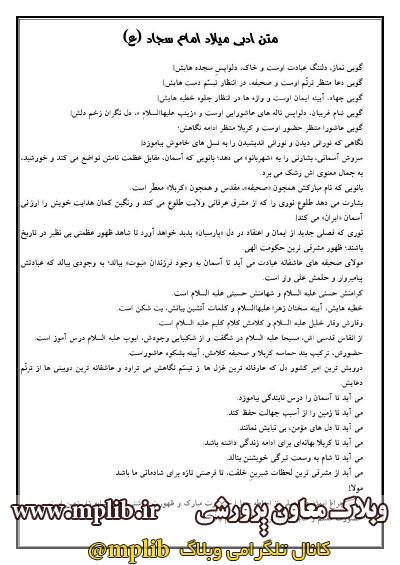 متن ادبی میلاد امام سجاد (ع)
گویی نماز، دلتنگ عبادت اوست و خاک، دلواپس سجده هایش!
گویی دعا منتظر ترنّم اوست و صحیفه، در انتظار تبسّم دست هایش!
گویی جهاد، آیینه ایمان اوست و واژه ها در انتظار جلوه خطبه هایش!
گویی شام غریبان، دلواپس ناله های عاشورایی اوست و «زینب علیهاالسلام »، دل نگران زخم دلش!
گویی عاشورا منتظر حضور اوست و کربلا منتظر ادامه نگاهش؛
نگاهی که نورانی دیدن و نورانی اندیشیدن را به نسل های خاموش بیاموزد!
سروش آسمانی، بشارتی را به «شهربانو» می دهد؛ بانویی که آسمان، مقابل عظمت نامش تواضع می کند و خورشید،
به جمال معنوی اش رشک می برد.
بانویی که نام مبارکش همچون «صحیفه»، مقدس و همچون «کربلا» معطّر است.
بشارت می دهد طلوع نوری را که از مشرق عرفانی ولایت طلوع می کند و رنگین کمان هدایت خویش را ارزنی
آسمان «ایران» می کند!
نوری که فصلی جدید از ایمان و اعتقاد در دل «پارسیان» پدید خواهد آورد تا شاهد ظهور عظمتی بی نظیر در تاریخ
باشند؛ ظهور مشرقی ترین حکومت الهی.
مولای صحیفه های عاشقانه عبادت می آید تا آسمان به وجود فرزندان «نبوت» ببالد؛ به وجودی ببالد که عبادتش
پیامبروار و حلمش علی وار است.
کرامتش حسنی علیه السلام و شهامتش حسینی علیه السلام است.
خطبه هایش، آیینه سخنان زهرا علیهاالسلام و کلمات آتشین بیانش، بت شکن است.
وقارش وقار خلیل علیه السلام و کلامش کلام کلیم علیه السلام است.
از انفاس قدسی اش، مسیحا علیه السلام در شگفت و از شکیبایی وجودش، ایوب علیه السلام درس آموز است.
حضورش، ترکیب بند حماسه کربلا و صحیفه کلامش، آیینه بشکوه عاشوراست
درویش ترین امیر کشور دل که عارفانه ترین غزل ها ز تبسّم نگاهش می تراود و عاشقانه ترین دوبیتی ها از ترنّم
دعایش.
می آید تا آسمان را درس تابندگی بیاموزد.
می آید تا زمین را از آسیب جهالت حفظ کند.
می آید تا دل های مؤمن، بی نیایش نمانند.
می آید تا کربلا بهانه‌ای برای ادامه زندگی داشته باشد.
می آید تا شام به وسعت تیرگی خویشتن بنالد.
می آید از مشرقی ترین لحظات شیرین خلقت، تا فرصتی تازه برای شادمانی ما باشد.
مولا!
وبلاگ معاون پرورشی www.mplib.ir
کانال تلگرامی وبلاگ @mplib